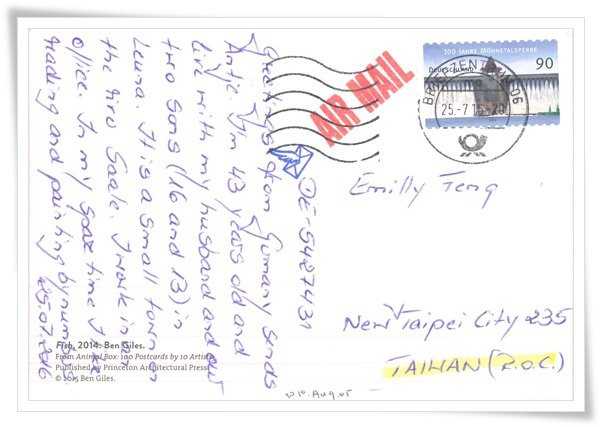 100 JAHRE MÖHNETALSPERRE
Deutschland 90
BRIEFZENTRUM 06
25.-7.16-20
AIR MAIL
DE-5427431
Greetings from Germany sends
Antje. I'm 43 years old and
live with my husband and our
two sons (16 and 13) in
Leuna. It is a small town on
the river Saale. I work in an
office. In my spare time I like
reading and painting by numbers.
25.07.2016
Emilly Feng
New Taipei City 235
TAIWAN (R.O.C.)
Fish, 2014. Ben Giles.
From Animal Box: 100 Postcards by 10 Artists
Published by Princeton Architectural Press
© 2015 Ben Giles.
2016.Aug.05